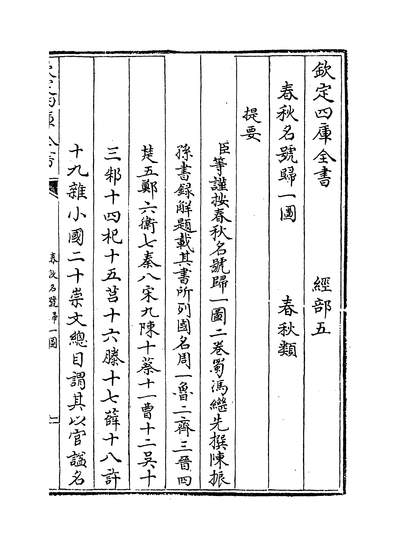 欽定四庫全書　經部五
春秋名號歸一圖　春秋類
提要
臣等謹按春秋名號歸一圖二卷蜀馮繼先撰陳振
孫書録解題載其書所列國名周一魯二齊三晉四
楚五鄭六衛七秦八宋九陳十蔡十一曹十二吳十
三邾十四杞十五莒十六滕十七薛十八許
十九雜小國二十崇文總目謂其以官諡名
春秋名號歸一圖